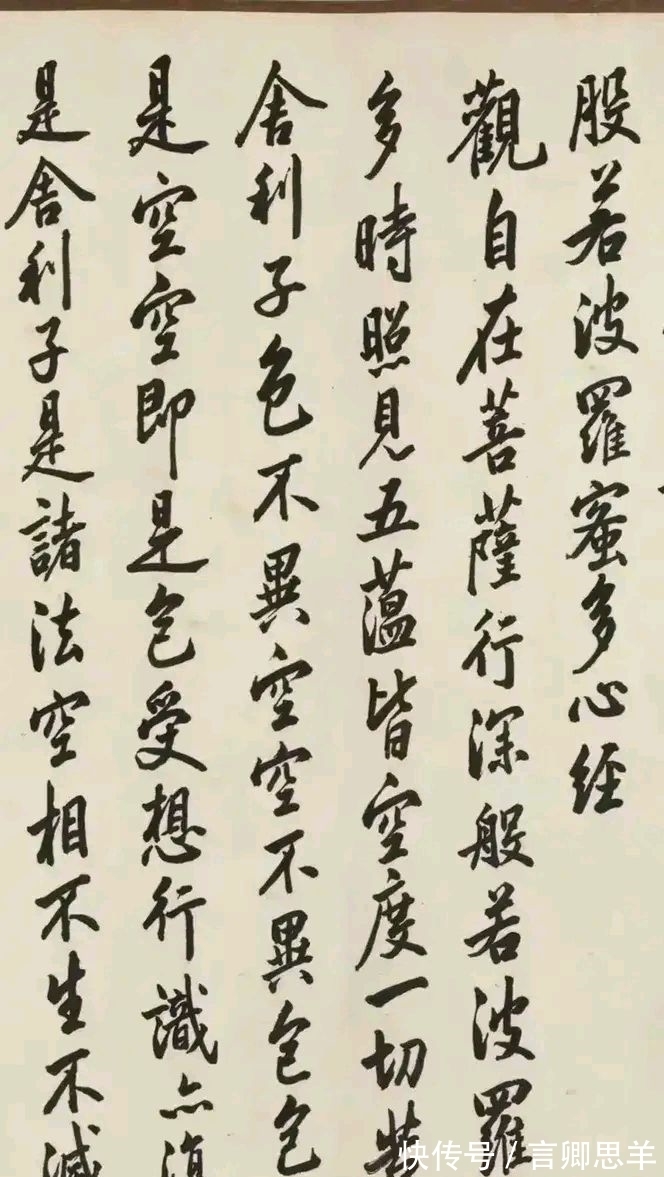 般若波羅蜜多心經
觀自在菩薩行深般若波羅
多時照見五薀皆空度一切
舍利子色不異空空不異色色
是空空即是色受想行識亦復
是舍利子是諸法空相不生不滅
快传号/言卿思羊